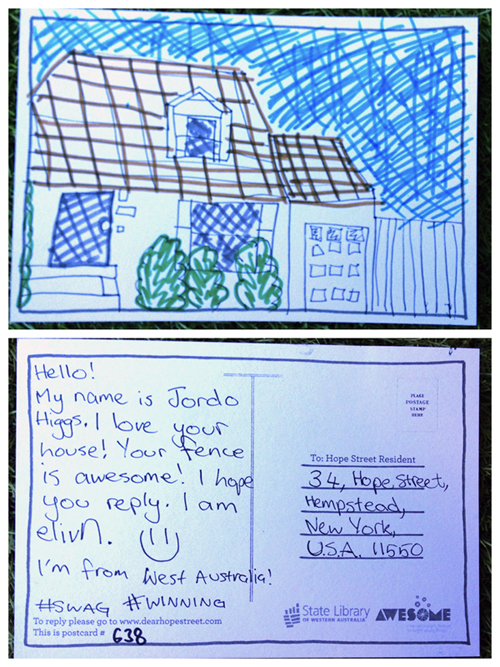 Hello!
My name is Jordo
Higgs. I love your
house! Your fence
is awesome! I hope
you reply. I am
elivn.
I'm from West Australia!
#SWAG #WINNING
To reply please go to www.dearhopestreet.com
This is postcard # 638
PLACE
POSTAGE
STAMP
HERE
To: Hope Street Resident
34, Hope Street,
Hempstead,
New York,
U.S.A. 11550
State Library
OF WESTERN AUSTRALIA
AWESOME